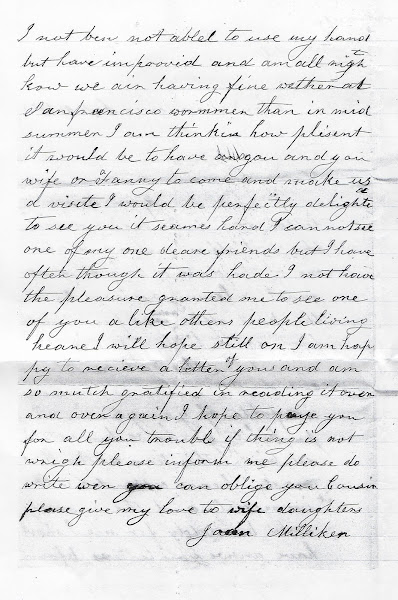 I not ben not ablel to use my hand
but have improovid and am all nigh t
know we air having fine wether at
Sanfrancisco wormmer than in mid
summer I am thinkin how plisent
it would be to have you and you
wife or Fanny to come and make us
a visite I would be perfectly delighte d
to see you it seames hand I can not see
one of my one deare friends but I have
often though it was hade I not have
the pleasure granted me to see one
of you a like others people living
heare I will hope still on I am hap
py to recieve a letter of you and am
so mutch gratified in reading it over
and over again I hope to paye you
for all you trouble if thing is not
wrigh please inform me please do
write wen you can oblige you Cousin
please give my love to wife daughters
Milliken